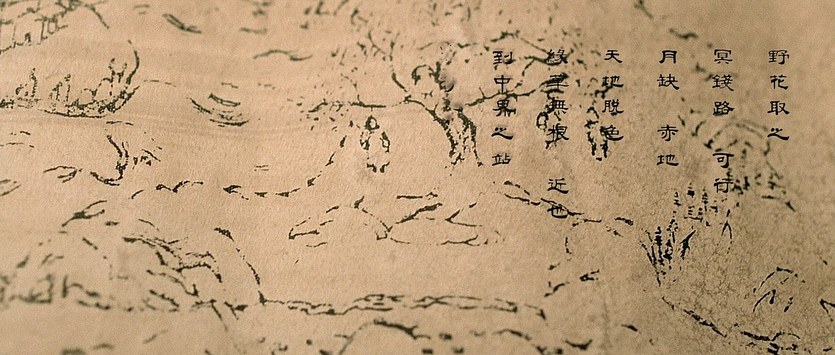 野花取之
冥錢路 可行
月缺 赤地
天地脫色
綠草無痕 近也
到中界之站